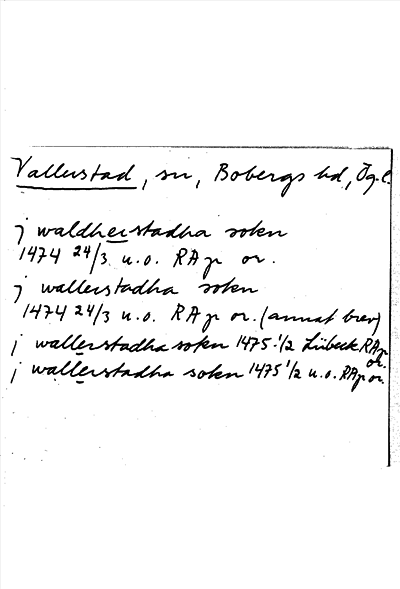 Vallerstad, sn, Bobergs hd, Ög.l.
j waldherstadha sokn
1474 24/3 u.o. RAp or.
j wallerstadha sokn
1474 24/3 u.o. RAp or. (annat brev)
j wallerstadha sokn 1475 1/2 Lübeck RAp or.
j wallerstadha sokn 1475 1/2 u.o. RAp or.